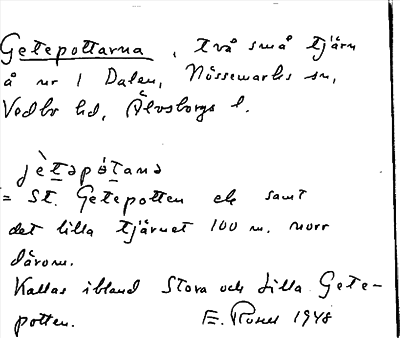 Getepottarna, två små tjärn
å nr 1 Dalen, Nössemarks sn,
Vedbo hd, Älvsborgs l.
jètepótana
= St. Getepotten ek samt
det lilla tjärnet 100 m. norr
därom.
Kallas ibland Stora och Lilla Gete-
potten. E. Rosell 1948